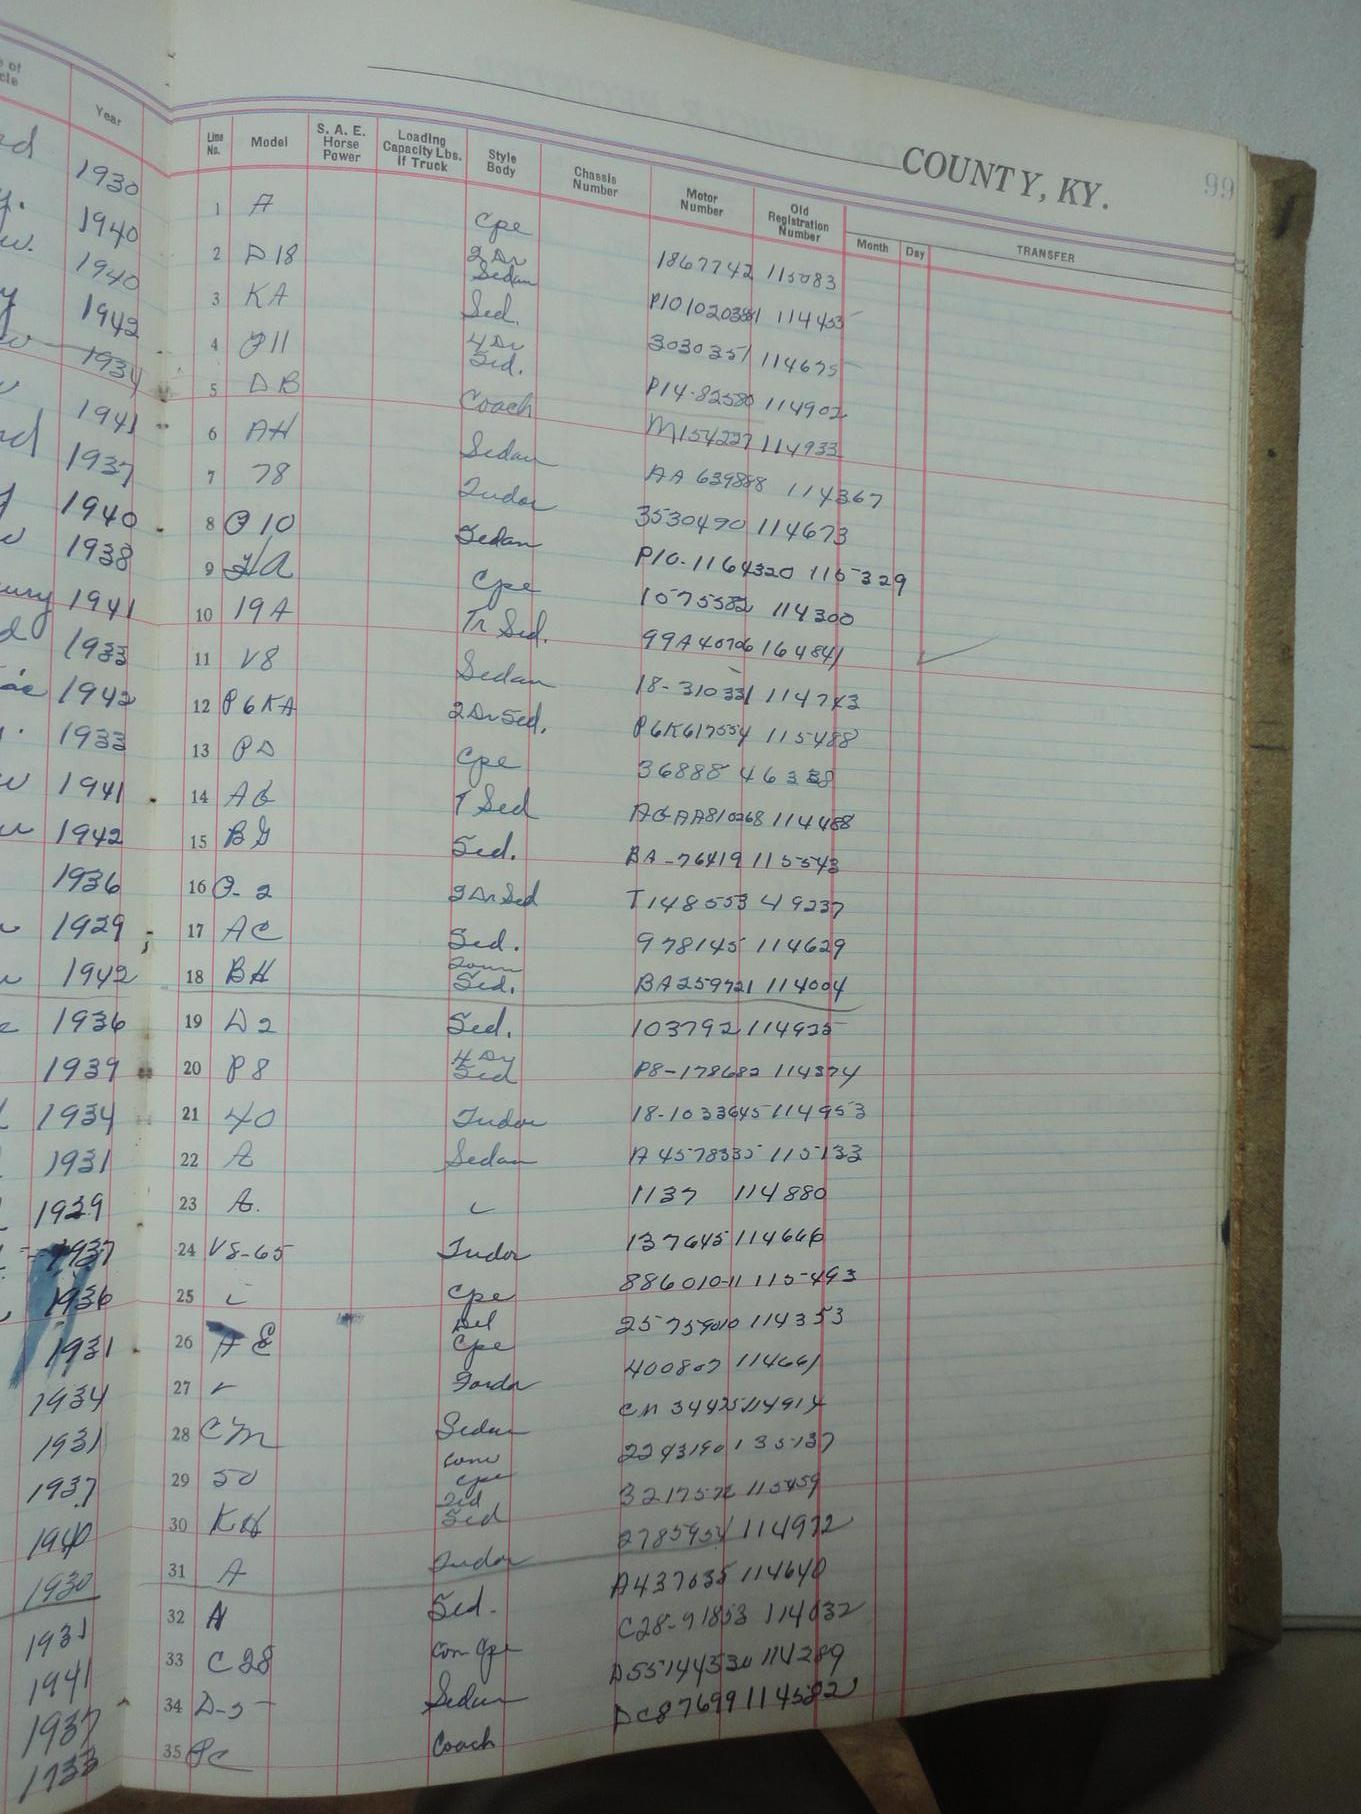 COUNTY, KY.
99
Year
Line No.
Model
S. A. E. Horse Power
Loading Capacity Lbs. if Truck
Style Body
Chassis Number
Motor Number
Old Registration Number
Month
Day
TRANSFER
1930 1 A Cpe 1867742 115083
1940 2 D18 2 Dr Sedan
1940 3 KA Sed. 3030351 114675
1942 4 P11 4 Dr Sed. P14-82580 114902
1934 5 DB Coach M154227 114933
1941 6 AH Sedan AA 639888 114367
1937 7 78 Tudor 3530490 114673
1940 8 P10 Sedan P10-1164320 115329
1938 9 HA Cpe 1075582 114300
1941 10 19A Tr Sed. 99A40706 164841
1933 11 V8 Sedan 18-310331 114743
1942 12 P6KA 2 Dr Sed. P6K617554 115488
1933 13 PD Cpe 36888 46338
1941 14 AG T Sed AGAA810268 114488
1942 15 BG Sed. BA-76419 115543
1936 16 P-2 2 Dr Sed T148553 49237
1929 17 AC Sed. 978145 114629
1942 18 BH Town Sed. BA259721 114004
1936 19 D2 Sed. 103792 114925
1939 20 P8 4 Dr Sed P8-178682 114374
1934 21 40 Tudor 18-1033645 114953
1931 22 A Sedan A4578335 115133
1929 23 A. 1137 114880
1937 24 V8-65 Tudor 137645 114666
1936 25 Cpe 115493
1931 26 AE Del Cpe 114353
1934 27 Fordor 400807 114661
1931 28 CM Sedan 114914
1937 29 50 Conv Cpe 2243190 135137
1940 30 KH Sed 115459
1930 31 A Tudor 114972
1931 32 A Sed. A437635 114640
1941 33 C28 Con Cpe C28-91853 114032
1937 34 D-5 Sedan 114289
1933 35 PC Coach DC87699 114582